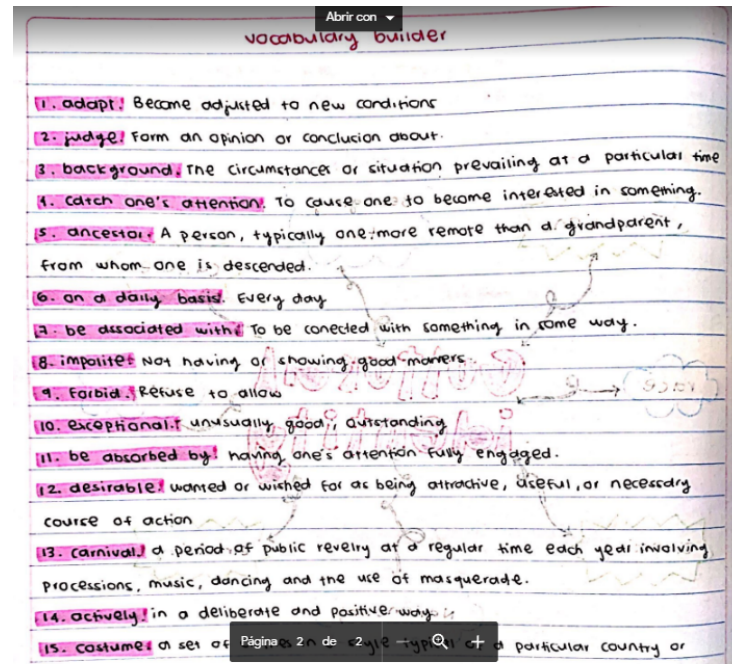 Abrir con
vocabulary builder
1. adapt: Become adjusted to new conditions
2. judge: Form an opinion or conclusion about.
3. background: The circumstances or situation prevailing at a particular time
4. catch one's attention: To cause one to become interested in something.
5. ancestor: A person, typically one more remote than a grandparent,
from whom one is descended.
6. on a daily basis: Every day
7. be associated with: To be conected with something in some way.
8. impolite: Not having or showing good manners.
9. Forbid: Refuse to allow
10. exceptional: unusually good; outstanding
11. be absorbed by: having one's attention fully engaged.
12. desirable: wanted or wished for as being attractive, useful, or necessary
course of action
13. carnival: a period of public revelry at a regular time each year involving
processions, music, dancing and the use of masquerade.
14. actively: in a deliberate and positive way
15. costume: a set of in a style typical of a particular country or
Página 2 de 2 — +